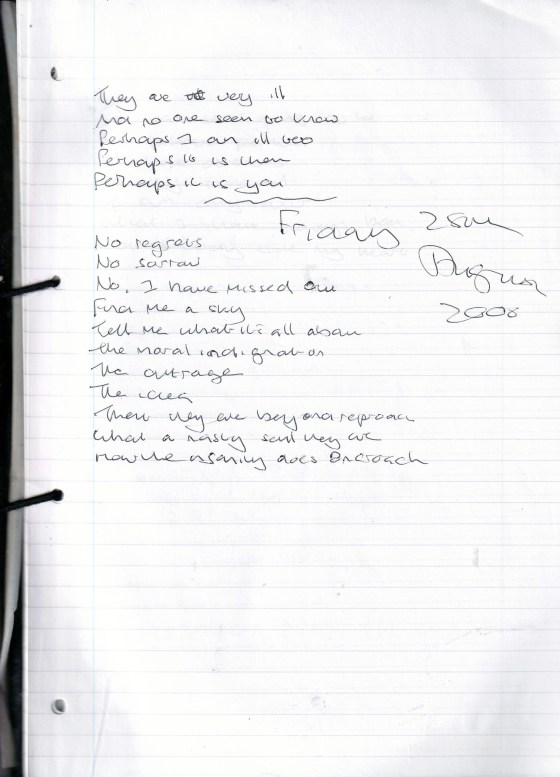 They are very ill
And no one seem to know
Perhaps I am ill too
Perhaps it is them
Perhaps it is you
Friday 25th
August
2000
No regrets
No sorrow
No, I have missed out
Find me a sky
Tell me what it's all about
The moral indignation
The outrage
The idea
That they are beyond reproach
What a nasty sort they are
How the insanity does encroach